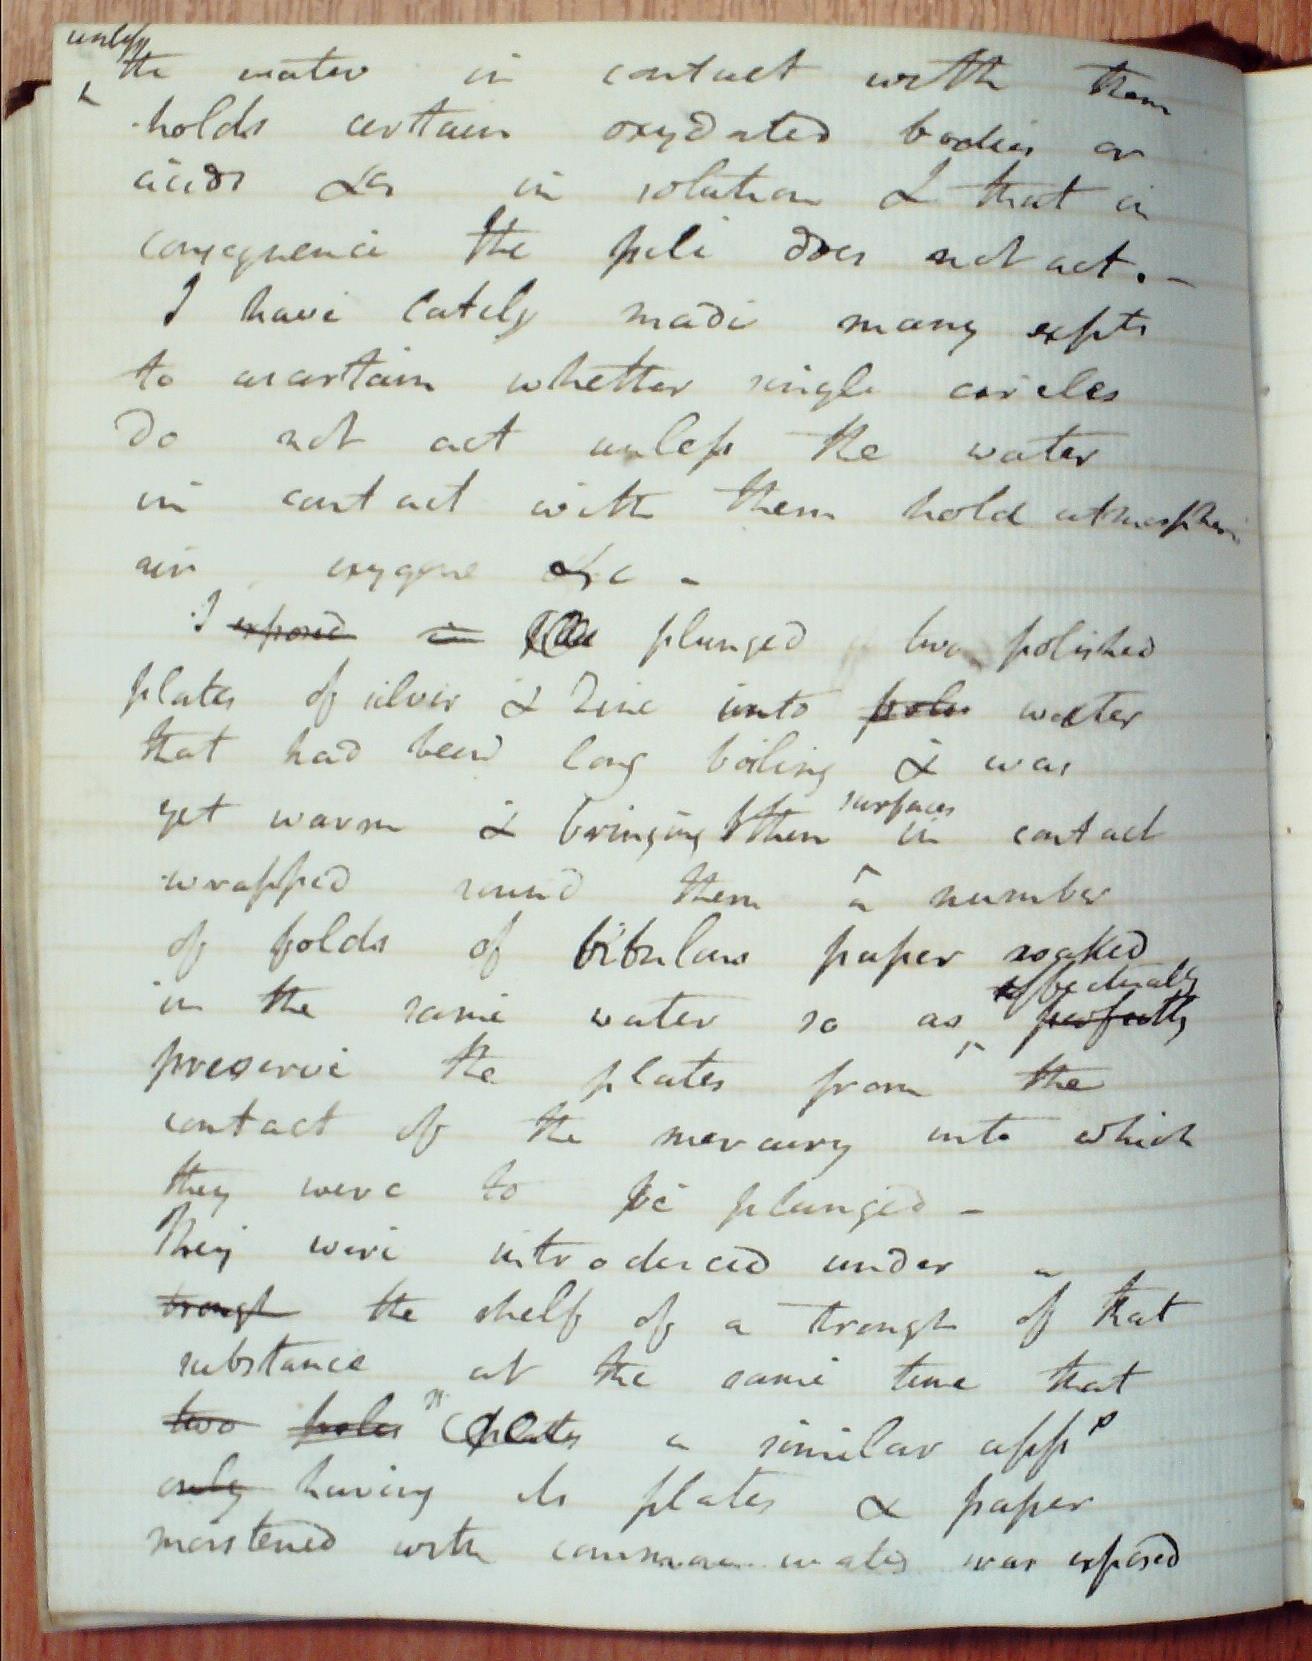 unless
the water in contact with them
holds certain oxydated bodies or
acids &c in solution & that in
consequence the pile does not act. -
I have lately made many expts
to ascertain whether single circles
do not act unless the water
in contact with them hold atmospheric
air oxygene &c -
I exposed in plunged two polished
plates of silver & Zinc into poles water
that had been long boiling & was
surfaces
yet warm & bringing them in contact
wrapped round them a number
of folds of bibulous paper soaked
effectually
in the same water so as perfectly
preserve the plates from the
contact of the mercury into which
they were to be plunged -
They were introduced under a
trough the shelf of a trough of that
substance at the same time that
two poles plates a similar appᵃ
only having its plates & paper
moistened with common water was exposed